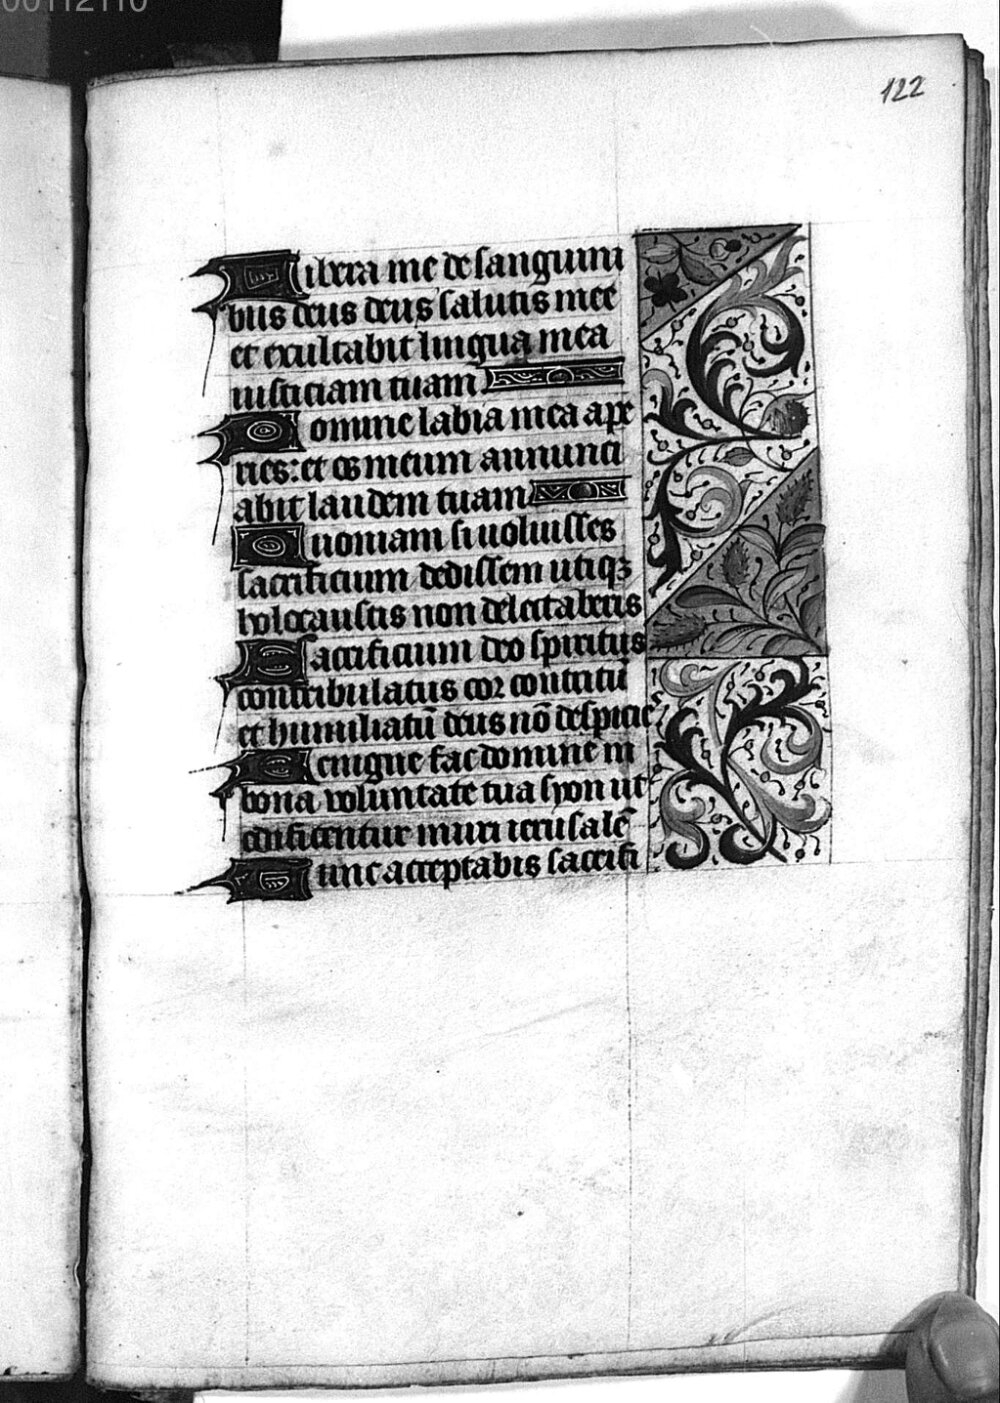 00112110
122
Libera me de sanguini
bus deus deus salutis mee
et exultabit lingua mea
iusticiam tuam
Domine labia mea ape
ries: et os meum annunci
abit laudem tuam
Quoniam si voluisses
sacrificium dedissem utiqꝫ
holocaustis non delectaberis
Sacrificium deo spiritus
contribulatus cor contritū
et humiliatū deus nō despicie
Benigne fac domine in
bona voluntate tua syon ut
edificentur muri ierusalē
Tunc acceptabis sacrifi